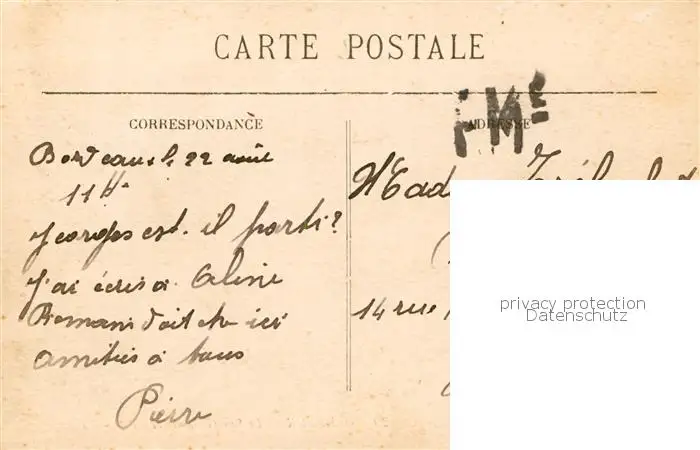 CARTE POSTALE
CORRESPONDANCE
ADRESSE
FMe
Bordeaux le 22 août
11 H.
Georges est-il parti?
J'ai écris à Aline
Romans doit etre ici
amitiés à tous
Pierre
Mad
14 rue
privacy protection
Datenschutz